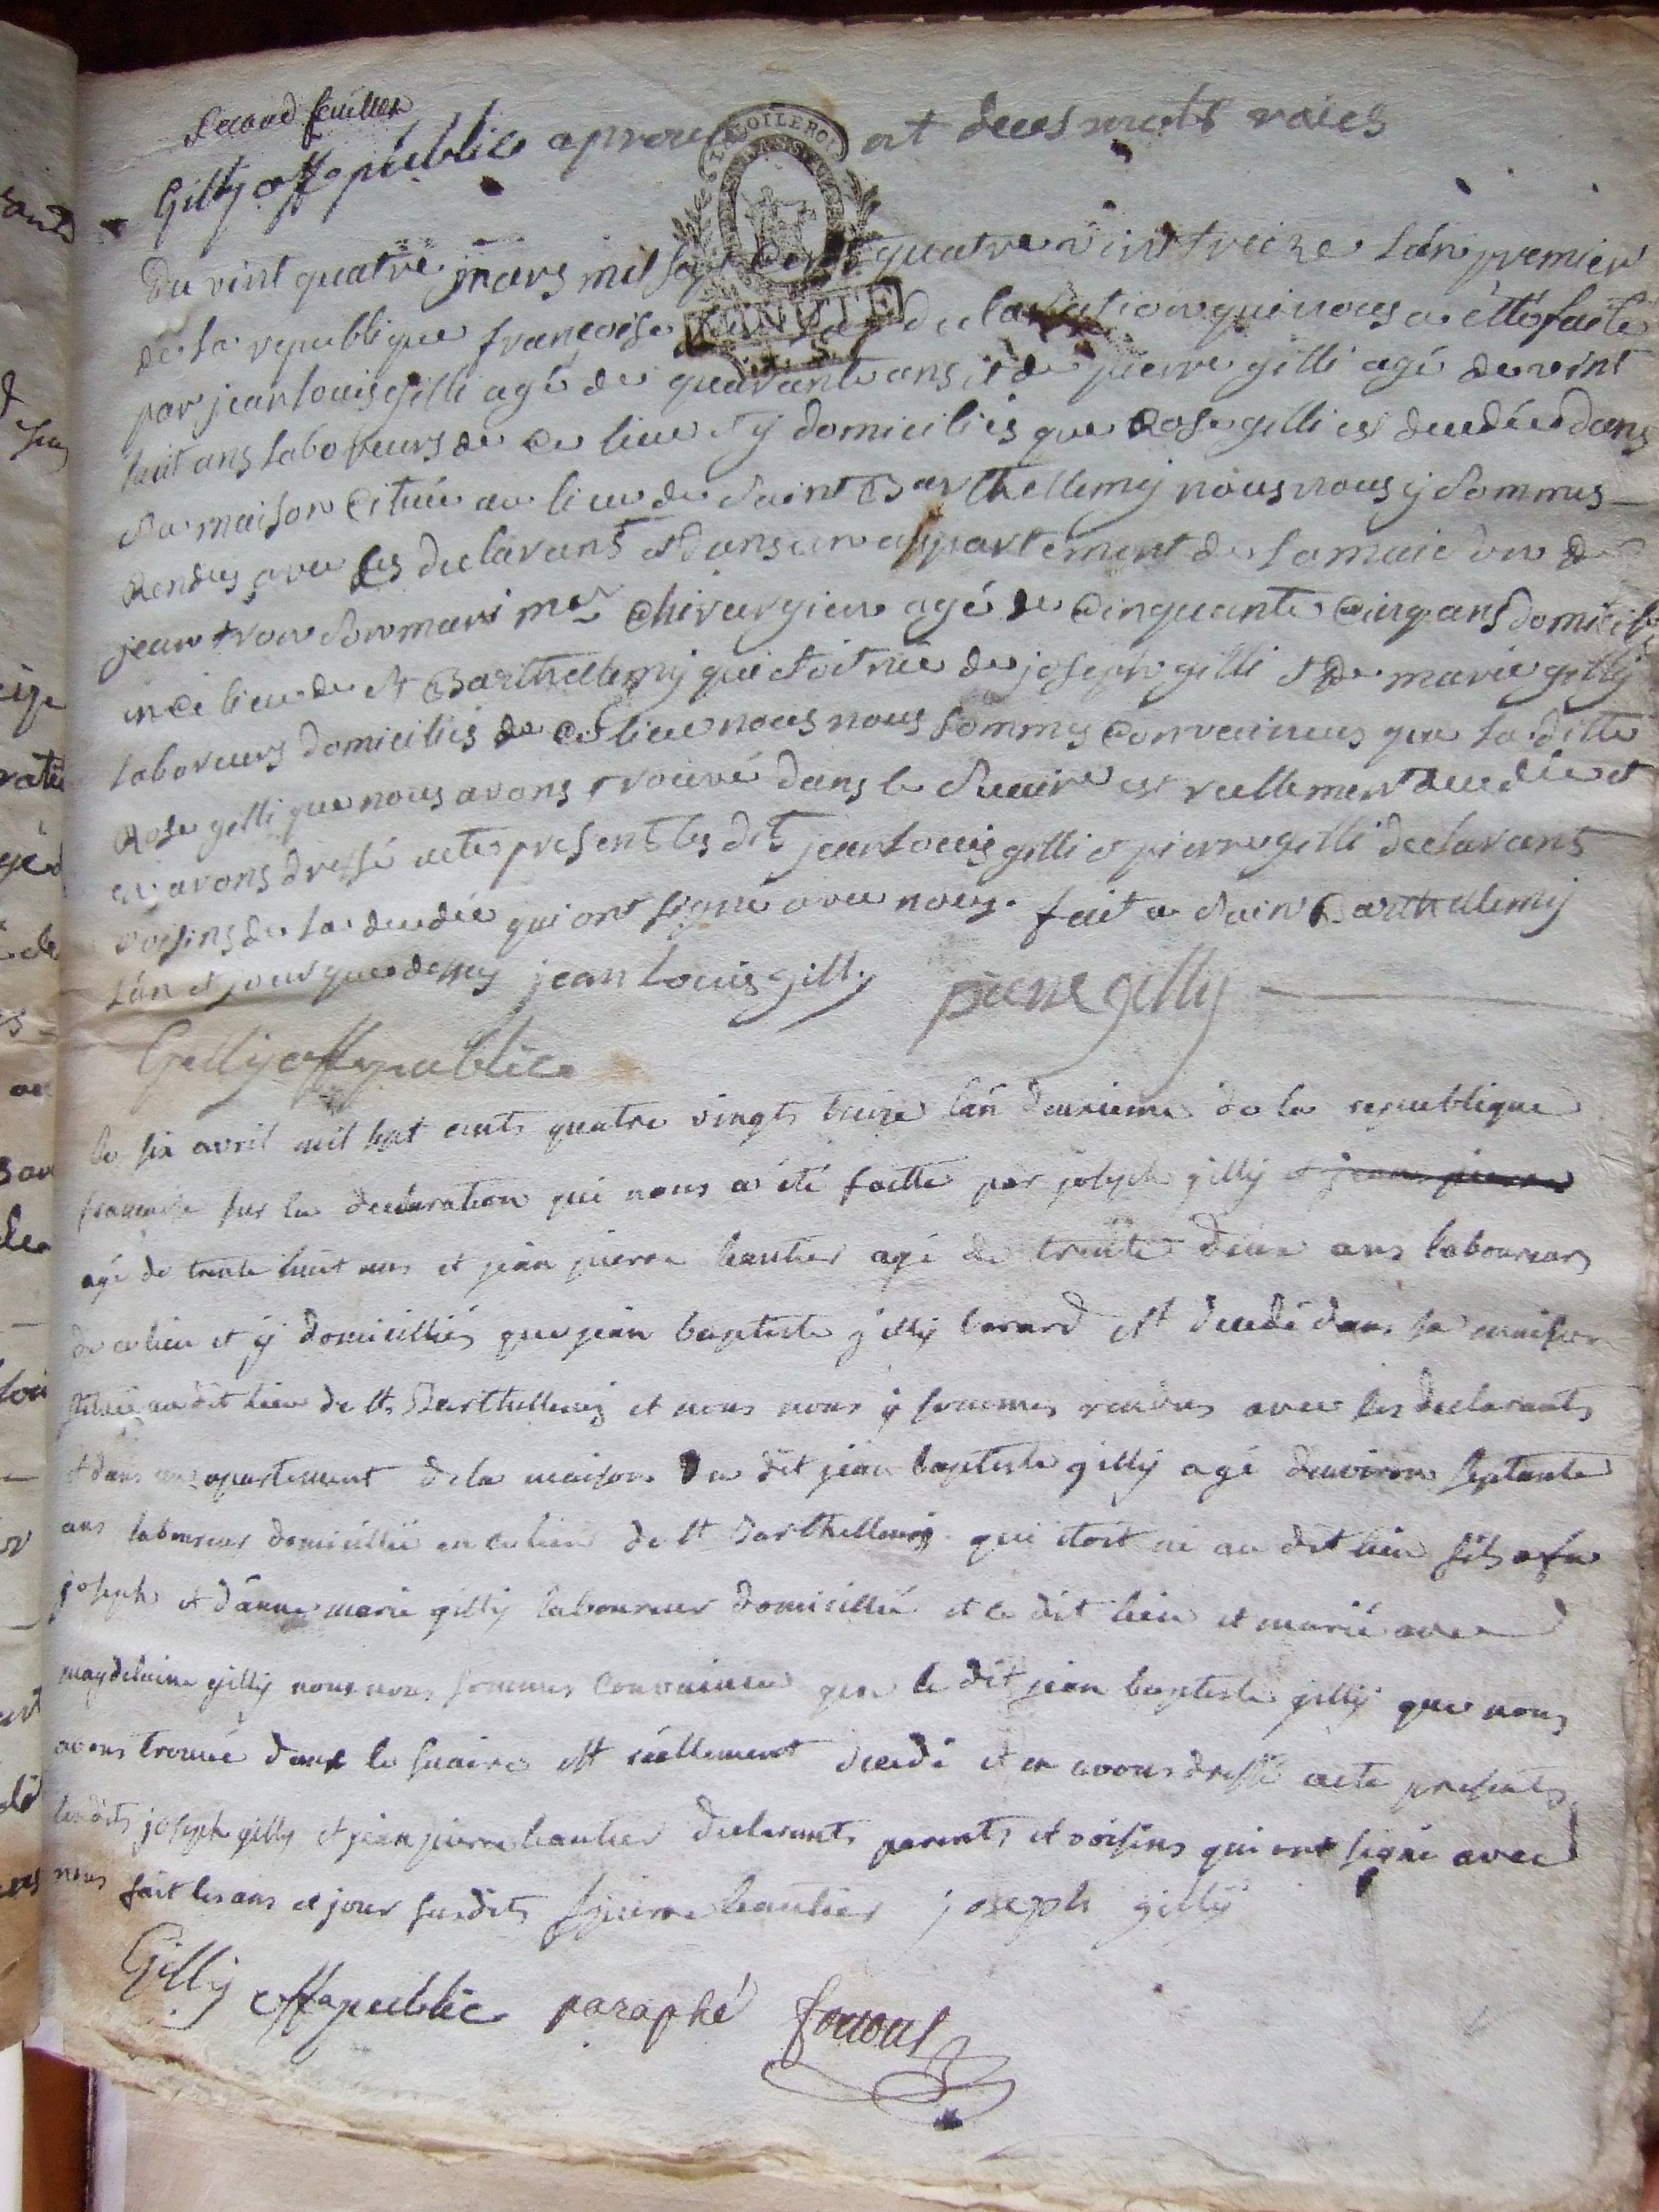 Second feuillet
Gilly off public aprouvé at deus mots raiés
LA LOI LE ROI
Du vint quatre mars mil sept cent quatre vint treize l'án premier
de la republique françoise sur la declaration qui nous a étté faite
par jean louis gilli agé de quarante ans et de pierre gilli agé de vint
huit ans laboreurs de ce lieu et y domiciliés que Rose gilli est decedée dans
sa maison cituée au lieu de saint Barthellemy nous nous y sommes
Rendus avec les declarans et dans un appartement de la maison de
jean son mari mer chirurgien agé de cinquante cinq ans domicilié
en ce lieu de St Barthellemy qui etoit née de joseph gilli et de marie gilly
laboreurs domiciliés de ce lieu nous nous sommes convaincus que la ditte
Rose gilli que nous avons trouvé dans le suaire est reellement decedée et
en avons dressé acte presents les dits jean louis gilli et pierre gilli declarans
voisins de la decedée qui ont signé avec nous. fait a Saint Barthellemy
l'án et jour que dessus jean louis gilly pierre gilly
Gilly off public
le six avril mil sept cents quatre vingts treize l'án deuxieme de la republique
françoise sur la declaration qui nous a été faitte par joseph gilly et jean pierre
agé de trente huit ans et jean pierre leautier agé de trente deux ans laboureurs
de ce lieu et y domicilliés que jean baptiste gilly berard est decedé dans sa maison
située au dit lieu de St Barthellemy et nous nous y sommes rendus avec les declarants
et dans un apartement de la maison du dit jean baptiste gilly agé d'environ septante
ans laboureur domicillié en ce lieu de St Barthellemy qui etoit né au dit lieu fils a feu
joseph et d'anne marie gilly laboureur domicillié et ce dit lieu et marié avec
magdelaine gilly nous nous sommes convaincu que le dit jean baptiste gilly que nous
avons trouvé dans le suaire est réellement decedé et en avons dressé acte presents
les dits joseph gilly et jean pierre leautier declarants parents et voisins qui ont signé avec
nous fait les ans et jour susdits jpierre leautier joseph gilly
Gilly off public paraphé